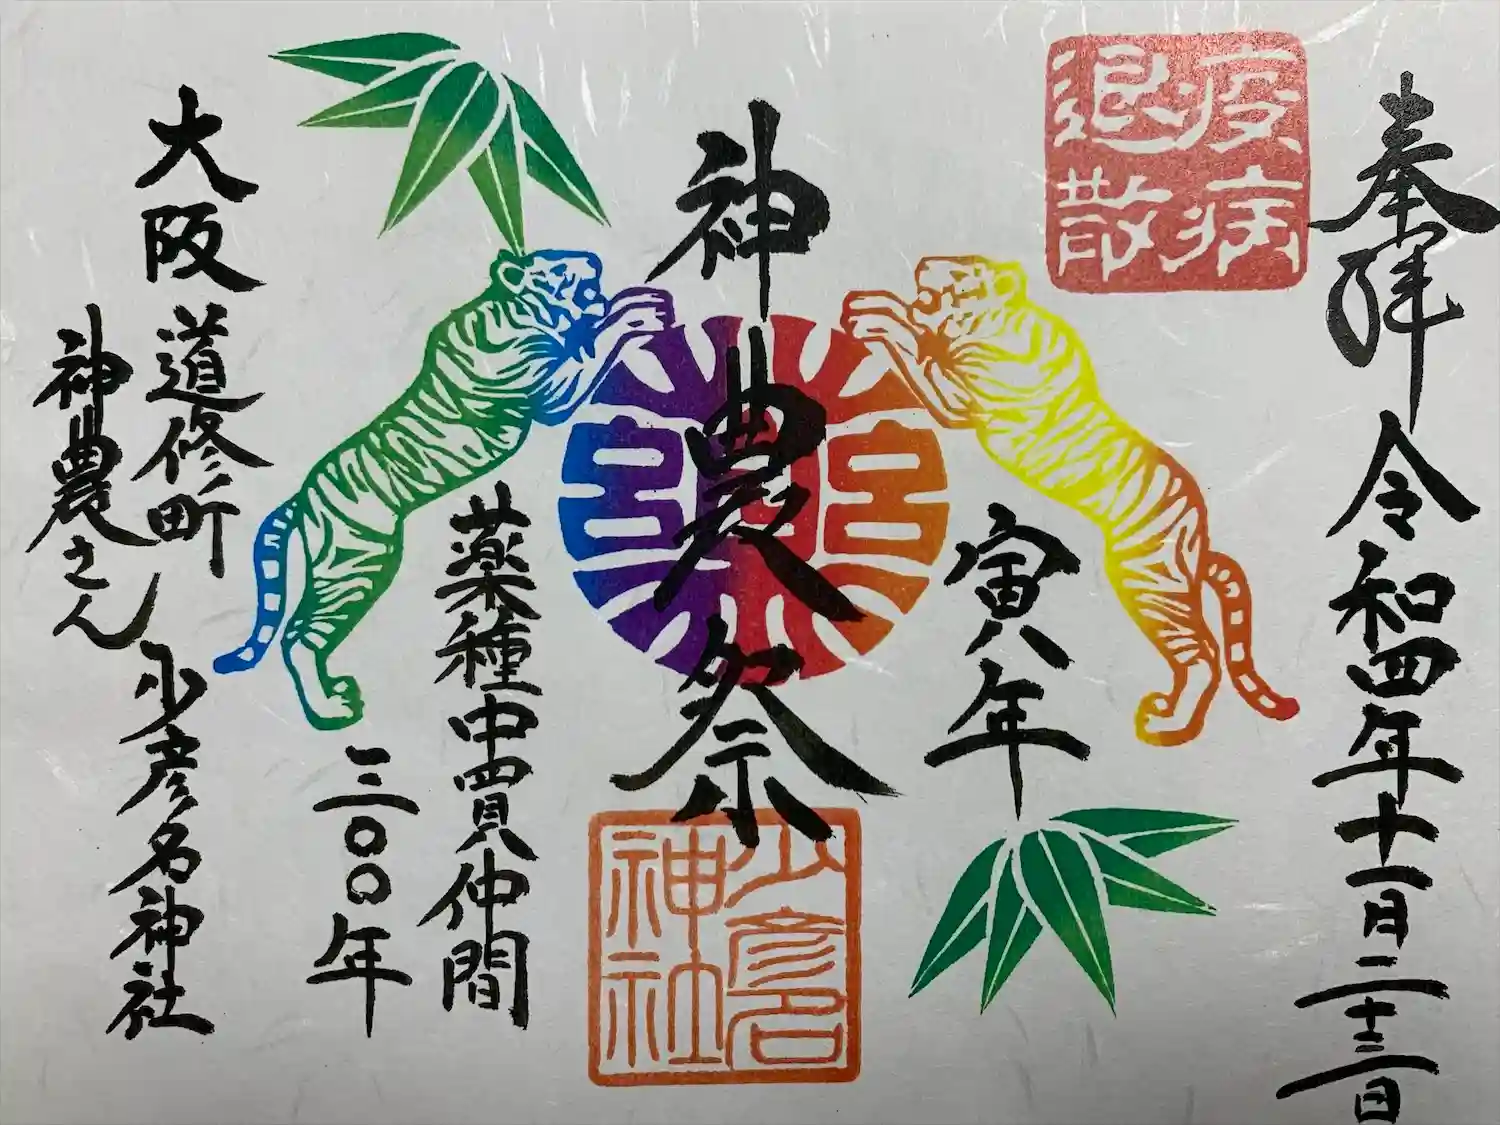 奉拝
令和四年十一月二十三日
疫病
退散
寅年
神農祭
少彦名
神社
薬種中買仲間
三〇〇年
大阪
道修町
神農さん
少彦名神社